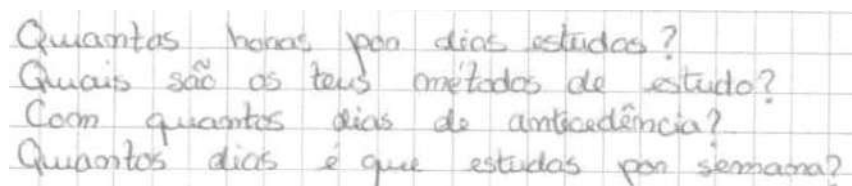 Quantas horas por dias estudas?
Quais são os teus métodos de estudo?
Com quantos dias de anticedência?
Quantos dias é que estudas por semana?